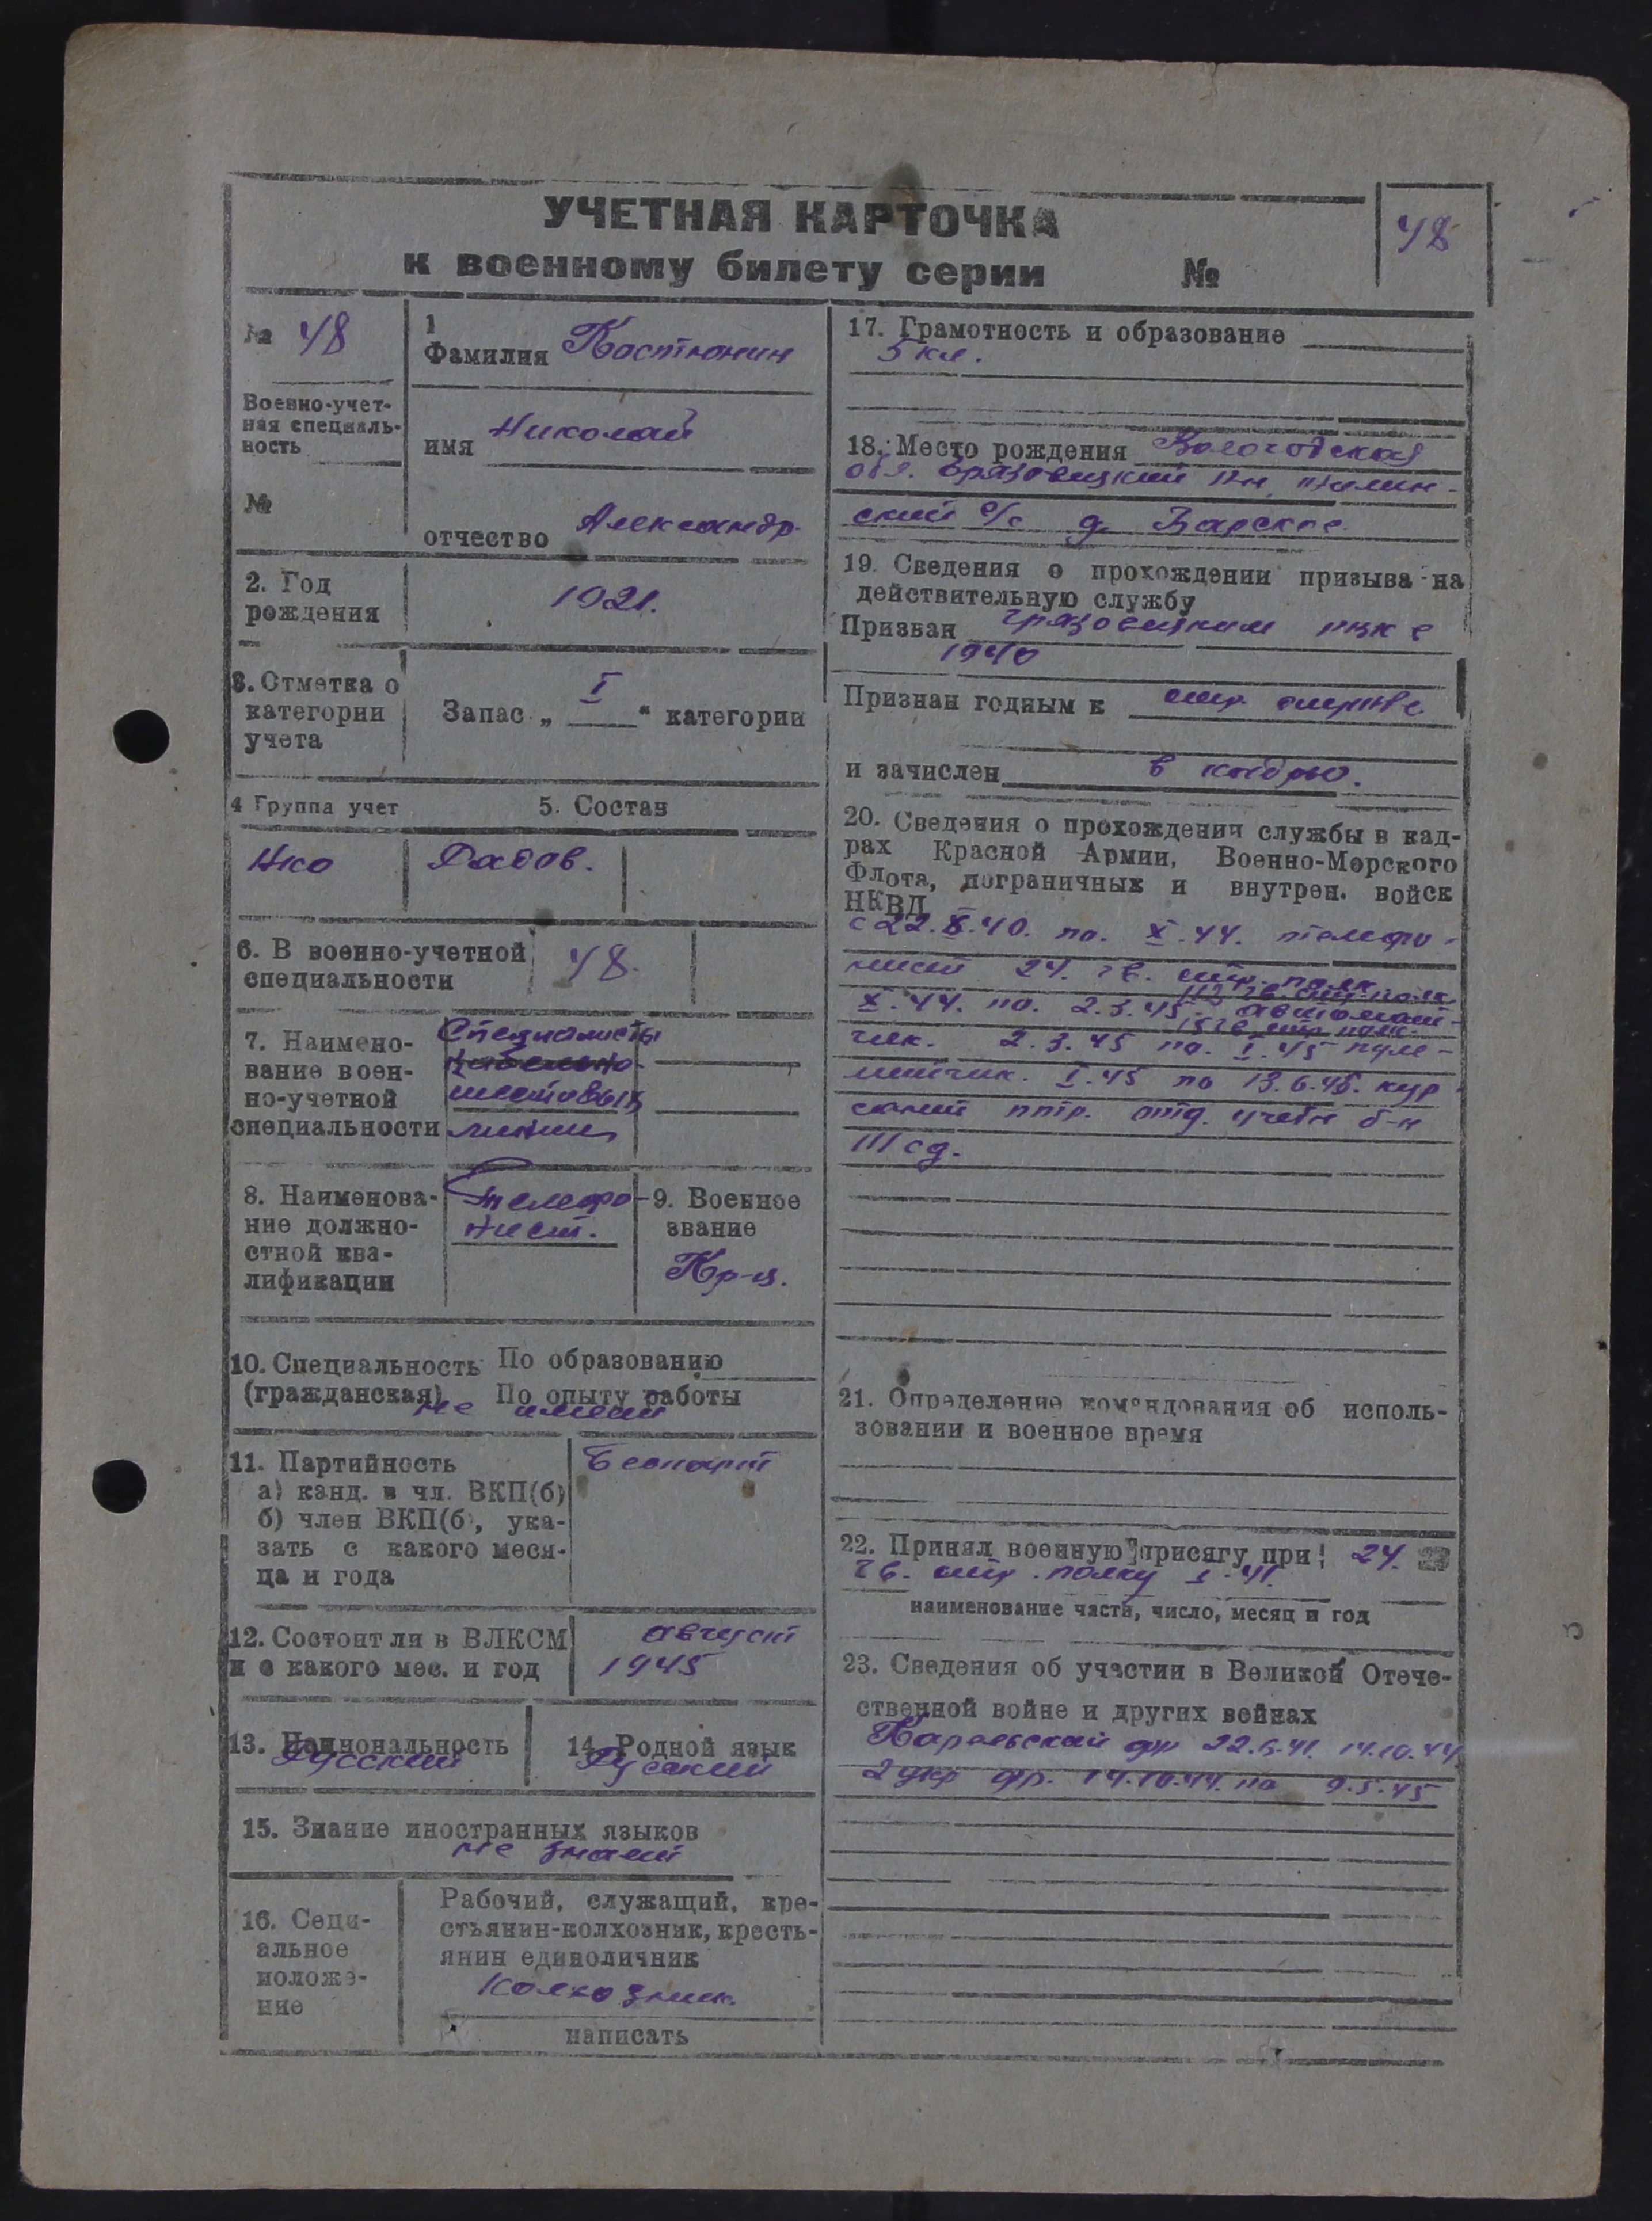 УЧЕТНАЯ КАРТОЧКА
к военному билету серии №
48
№ 48
Военно-учет-
ная специаль-
ность
№
1
Фамилия Костюнин
имя Николай
отчество Александр.
2. Год
рождения
1921.
3. Отметка о
категории
учета
Запас „ I “ категории
4 Группа учет
5. Состав
Нко
Рядов.
6. В военно-учетной
специальности
48.
7. Наимено-
вание воен-
но-учетной
специальности
Специалисты
кабельно
шестовых
линий
8. Наименова-
ние должно-
стной ква-
лификации
Телефо-
нист.
9. Военное
звание
Кр-ц.
10. Специальность По образованию
(гражданская) По опыту работы
не имеет
11. Партийность
а) канд. в чл. ВКП(б)
б) член ВКП(б), ука-
зать с какого меся-
ца и года
Беспарт
12. Состоит ли в ВЛКСМ
и с какого мес. и год
август
1945
13. Национальность
Русский
14. Родной язык
Русский
15. Знание иностранных языков
не знает
16. Соци-
альное
положе-
ние
Рабочий, служащий, кре-
стьянин-колхозник, кресть-
янин единоличник
Колхозник
написать
17. Грамотность и образование
5 кл.
18. Место рождения Вологодская
обл. Грязовецкий Рн,
ский с/с д.
19. Сведения о прохождении призыва на
действительную службу
Призван Грязовецким РВК в
1940
Признан годным к стр. службе
и зачислен в кадры.
20. Сведения о прохождении службы в кад-
рах Красной Армии, Военно-Морского
Флота, пограничных и внутрен. войск
НКВД
с 22.X.40. по. X.44. телефо-
нист 24. гв. стр. полк
X.44. по. 2.3.45 автомат-
чик. 2.3.45 по. I.45 пуле-
метчик. I.45 по 13.6.45. кур-
сант птр. отд. учебн б-н
III сд.
21. Определение командования об исполь-
зовании и военное время
22. Принял военную присягу при 24.
гв. стр. полку I.41.
наименование части, число, месяц и год
23. Сведения об участии в Великой Отече-
ственной войне и других войнах
Карельский фр 22.6.41. 14.10.44
2 укр фр. 14.10.44. по 9.5.45